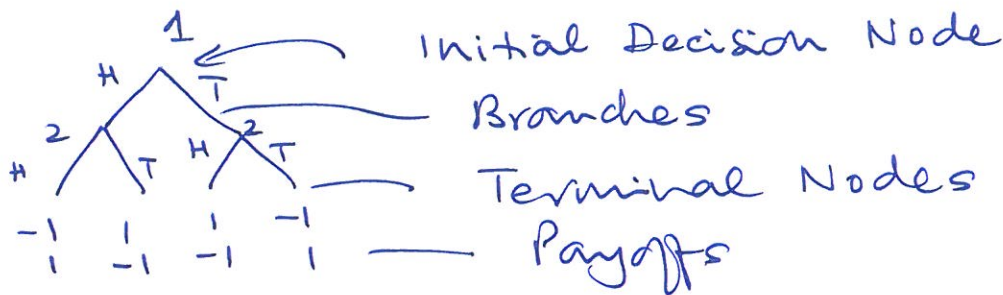 1
Initial Decision Node
H T
Branches
2 2
H T H T
Terminal Nodes
-1 1 1 -1
1 -1 -1 1
Payoffs